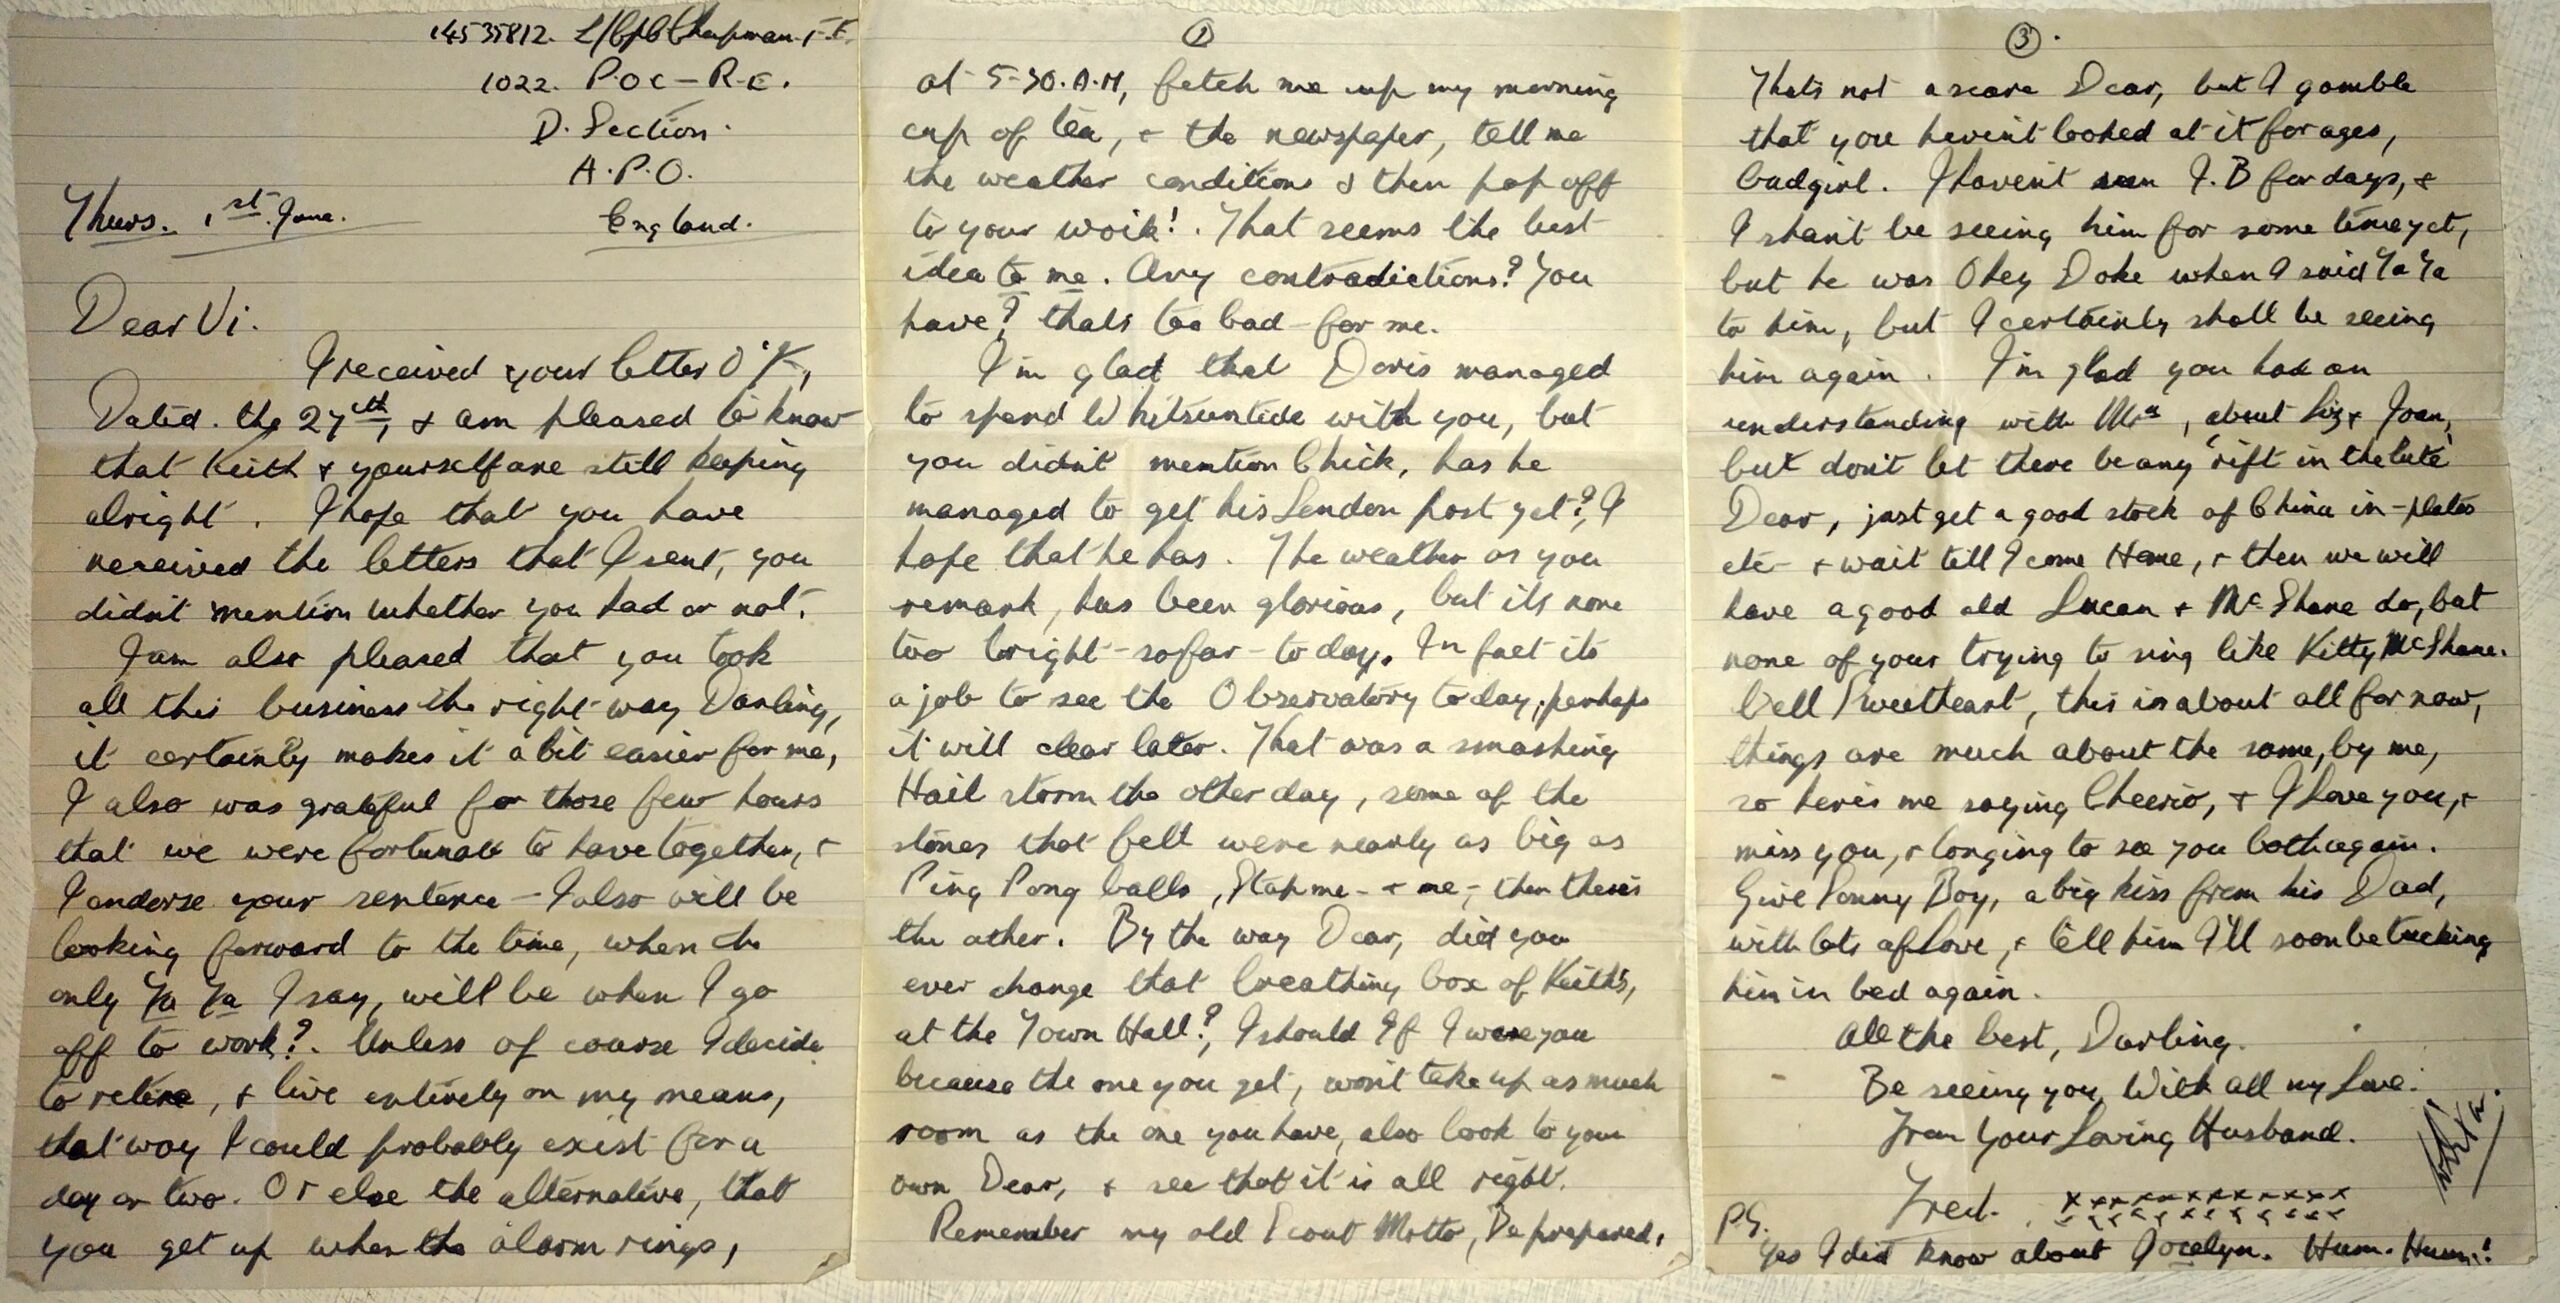 14535812. L/Cpl Chapman. F.F.
1022. P.O.C - R.E.
D. Section.
A.P.O.
England.
Thurs. 1st June.
Dear Vi.
I received your letter O.K,
Dated. the 27th, & am pleased to know
that Keith & yourself are still keeping
alright. I hope that you have
received the letters that I sent, you
didn't mention whether you had or not.
I am also pleased that you took
all this business the right way Darling,
it certainly makes it a bit easier for me,
I also was grateful for those few hours
that we were fortunate to have together, &
I endorse your sentence - I also will be
looking forward to the time, when the
only Ya Ya I say, will be when I go
off to work?. Unless of course I decide
to retire, & live entirely on my means,
that way I could probably exist for a
day or two. Or else the alternative, that
you get up when the alarm rings,
2
at 5-30.A.M, fetch me up my morning
cup of tea, & the newspaper, tell me
the weather conditions & then pop off
to your woik!. That seems the best
idea to me. Any contradictions? You
have? thats too bad - for me.
I'm glad that Doris managed
to spend Whitsuntide with you, but
you didn't mention Chick, has he
managed to get his London post yet?, I
hope that he has. The weather as you
remark, has been glorious, but its none
too bright - so far - to day. In fact its
a job to see the Observatory today, perhaps
it will clear later. That was a smashing
Hail storm the other day, some of the
stones that fell were nearly as big as
Ping Pong balls, Stap me - & me, - then there's
the other. By the way Dear, did you
ever change that breathing box of Keith's,
at the Town Hall?, I should If I were you
because the one you get, won't take up as much
room as the one you have, also look to your
own Dear, & see that it is all right.
Remember my old Scout Motto, Be prepared,
3.
Thats not a scare Dear, but I gamble
that you haven't looked at it for ages,
badgirl. I haven't seen J.B for days, &
I shan't be seeing him for some time yet,
but he was Okey Doke when I said Ya Ya
to him, but I certainly shall be seeing
him again. I'm glad you had an
understanding with Mrs, about Liz & Joan,
but don't let there be any 'rift in the lute'
Dear, just get a good stock of China in - plates
etc - & wait till I come Home, & then we will
have a good old Lucan & McShane do, but
none of your trying to sing like Kitty McShane.
Well Sweetheart, this is about all for now,
things are much about the same, by me,
so here's me saying Cheerio, & I Love you, &
miss you, & longing to see you both again.
Give Sonny Boy, a big kiss from his Dad,
with lots of Love, & tell him I'll soon be tucking
him in bed again.
All the best, Darling.
Be seeing you, With all my Love.
From Your Loving Husband.
Fred. xxxxxxxxxxxxxx
xxxxxxxxxxxx
P.S.
Yes I did know about Jocelyn. Hum. Hum.!